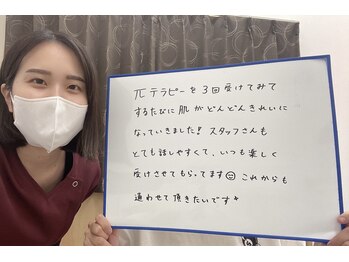 πテラピーを3回受けてみて
するたびに肌がどんどんきれいに
なっていきました!! スタッフさんも
とても話しやすくて、いつも楽しく
受けさせてもらってます☺ これからも
通わせて頂きたいです